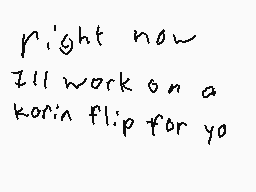 right now
I'll work on a
korin flip for yo